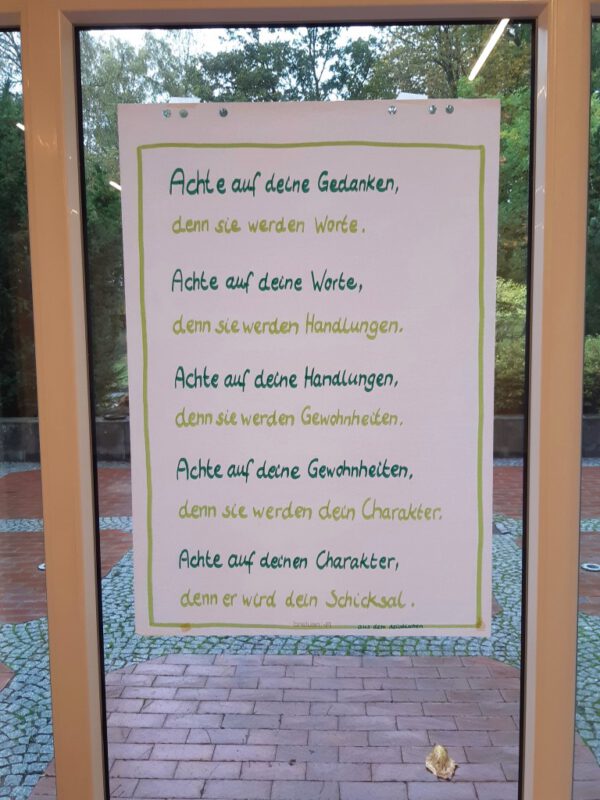 Achte auf deine Gedanken,
denn sie werden Worte.
Achte auf deine Worte,
denn sie werden Handlungen.
Achte auf deine Handlungen,
denn sie werden Gewohnheiten.
Achte auf deine Gewohnheiten,
denn sie werden dein Charakter.
Achte auf deinen Charakter,
denn er wird dein Schicksal.
aus dem